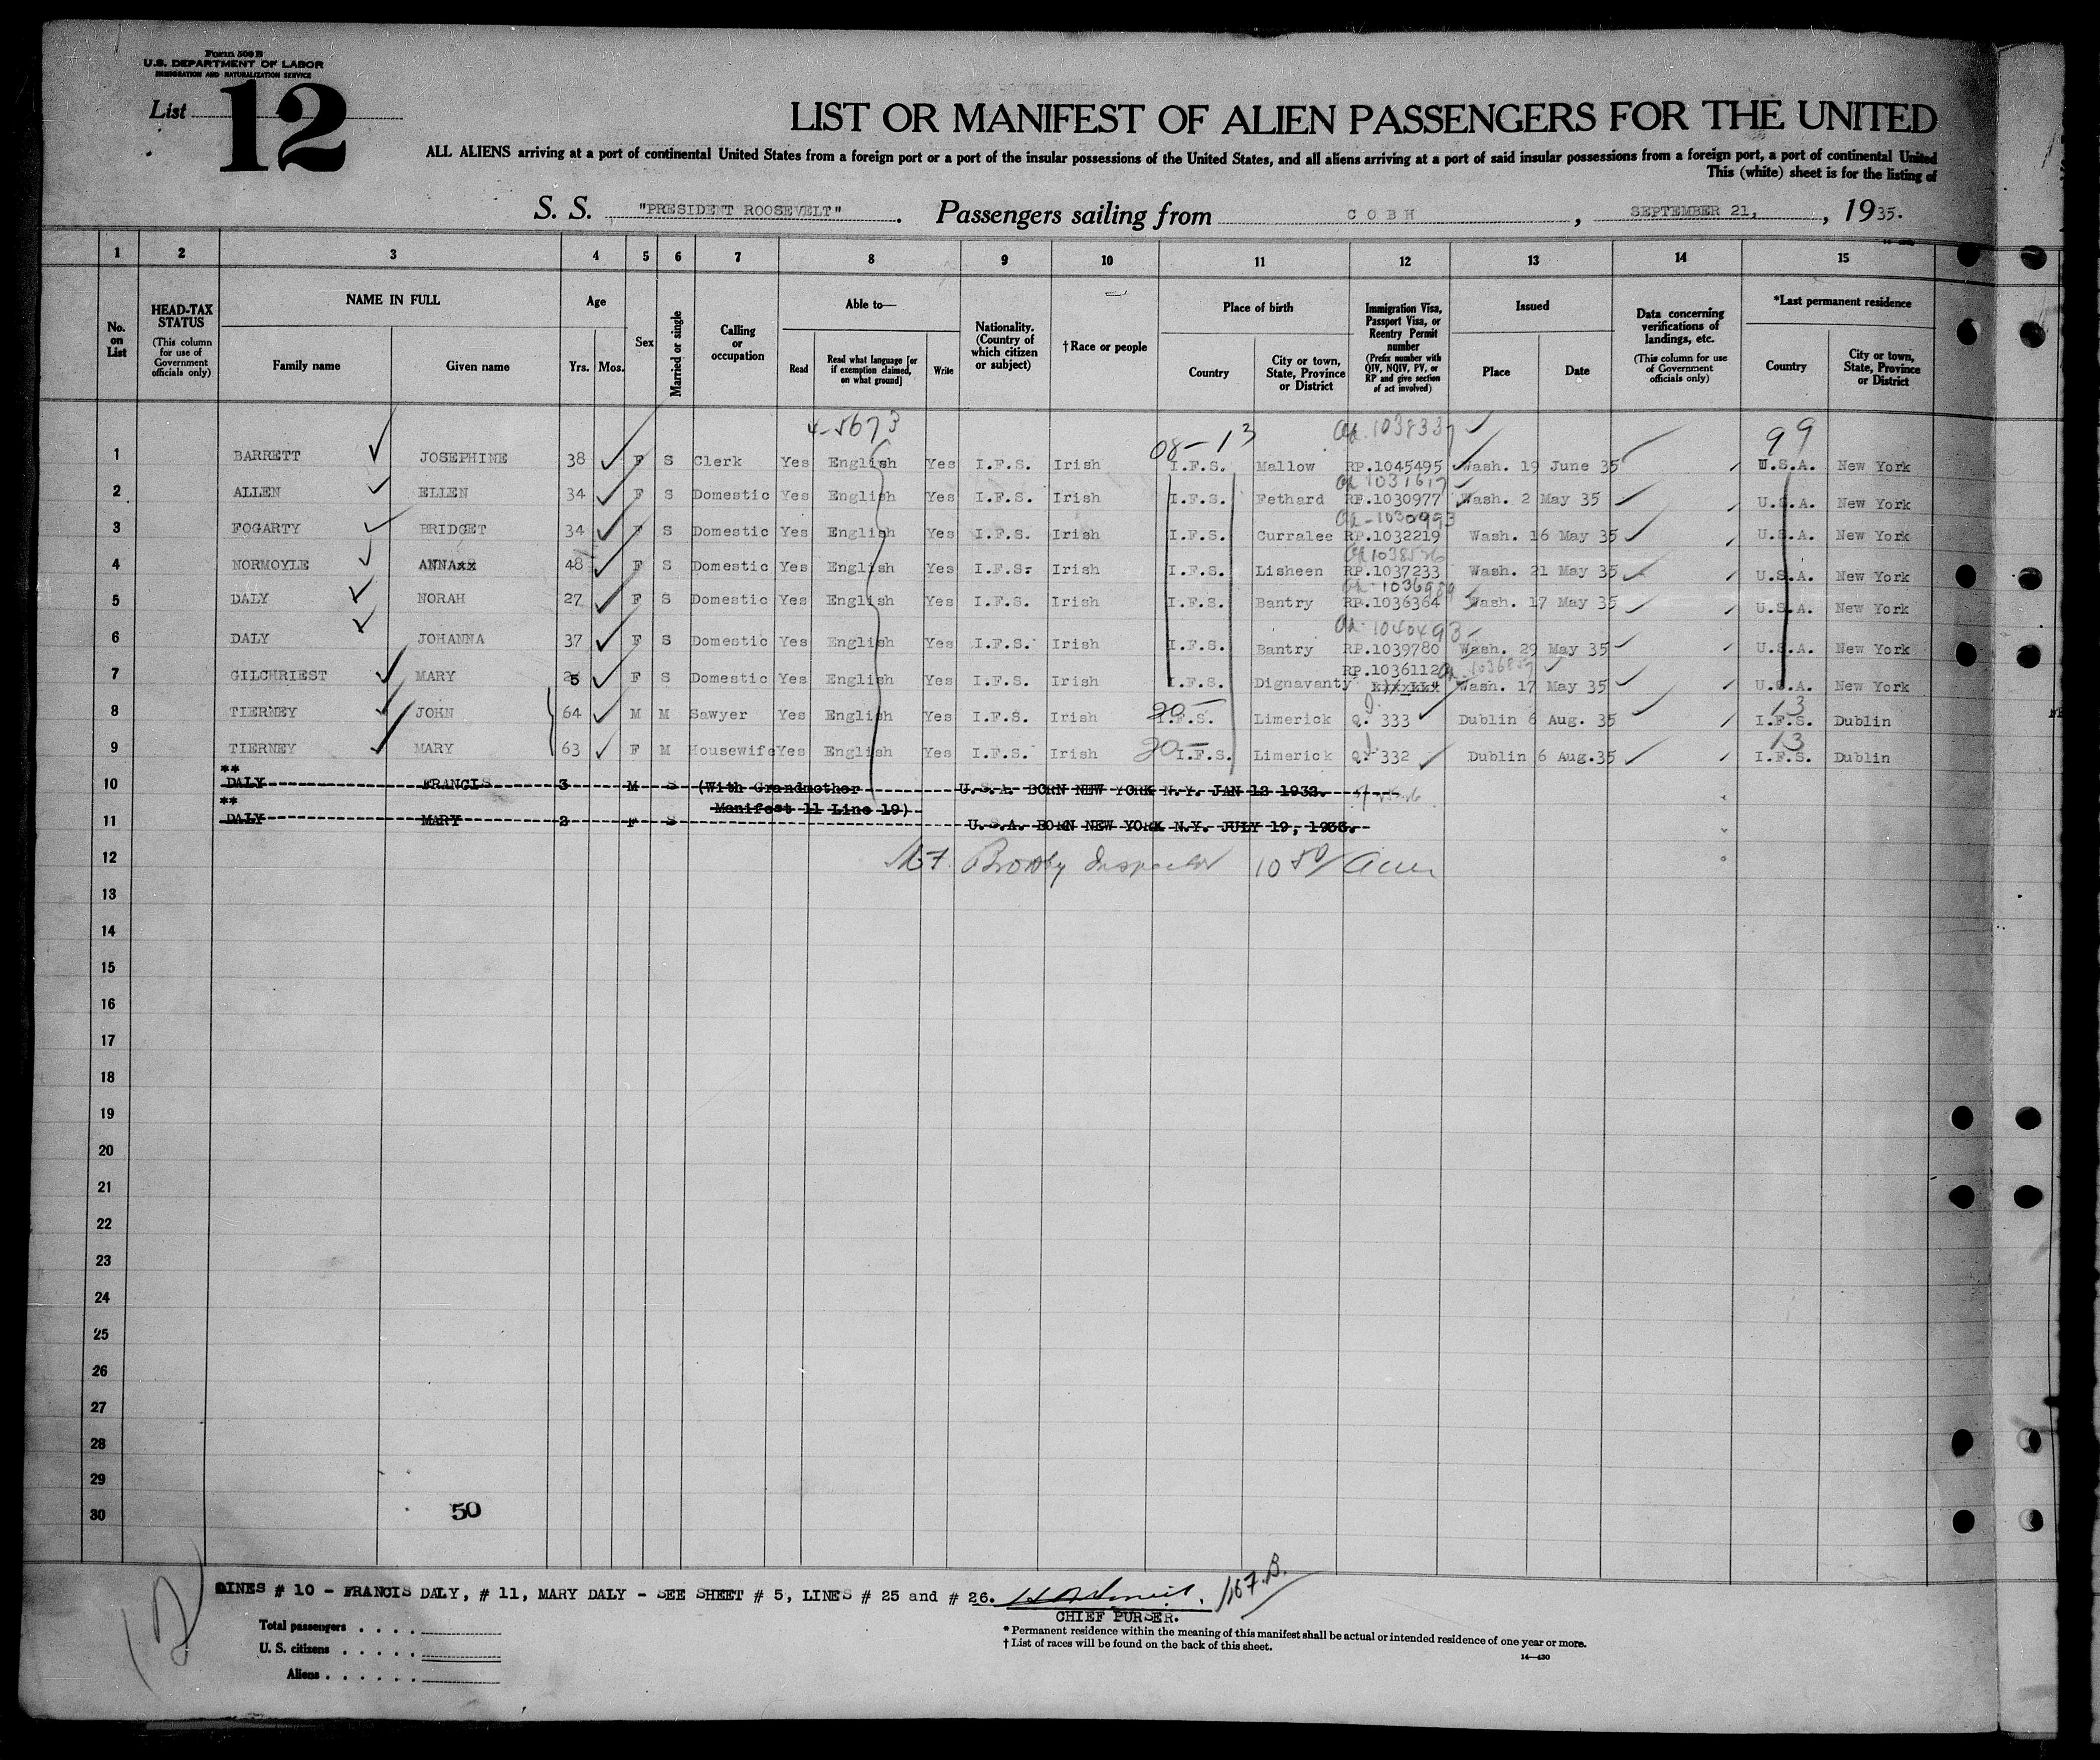 Form 500 B
U.S. DEPARTMENT OF LABOR
IMMIGRATION AND NATURALIZATION SERVICE
List 12
LIST OR MANIFEST OF ALIEN PASSENGERS FOR THE UNITED
ALL ALIENS arriving at a port of continental United States from a foreign port or a port of the insular possessions of the United States, and all aliens arriving at a port of said insular possessions from a foreign port, a port of continental United
This (white) sheet is for the listing of
S. S. "PRESIDENT ROOSEVELT". Passengers sailing from COBH, SEPTEMBER 21, , 1935.
1 2 3 4 5 6 7 8 9 10 11 12 13 14 15
No. on List
HEAD-TAX STATUS (This column for use of Government officials only)
NAME IN FULL
Family name Given name
Age
Yrs. Mos.
Sex
Married or single
Calling or occupation
Able to—
Read Read what language [or if exemption claimed, on what ground] Write
Nationality. (Country of which citizen or subject)
† Race or people
Place of birth
Country City or town, State, Province or District
Immigration Visa, Passport Visa, or Reentry Permit number (Prefix number with QIV, NQIV, PV, or RP and give section of act involved)
Issued
Place Date
Data concerning verifications of landings, etc. (This column for use of Government officials only)
*Last permanent residence
Country City or town, State, Province or District
4-5673 08-13 103833 99
1 BARRETT JOSEPHINE 38 F S Clerk Yes English Yes I.F.S. Irish I.F.S. Mallow RP.1045495 Wash. 19 June 35 U.S.A. New York
2 ALLEN ELLEN 34 F S Domestic Yes English Yes I.F.S. Irish I.F.S. Fethard RP.1030977 Wash. 2 May 35 U.S.A. New York
1030993
3 FOGARTY BRIDGET 34 F S Domestic Yes English Yes I.F.S. Irish I.F.S. Curralee RP.1032219 Wash. 16 May 35 U.S.A. New York
4 NORMOYLE ANNAxx 48 F S Domestic Yes English Yes I.F.S. Irish I.F.S. Lisheen RP.1037233 Wash. 21 May 35 U.S.A. New York
5 DALY NORAH 27 F S Domestic Yes English Yes I.F.S. Irish I.F.S. Bantry RP.1036364 Wash. 17 May 35 U.S.A. New York
1040493
6 DALY JOHANNA 37 F S Domestic Yes English Yes I.F.S. Irish I.F.S. Bantry RP.1039780 Wash. 29 May 35 U.S.A. New York
RP.1036112
7 GILCHRIEST MARY 25 F S Domestic Yes English Yes I.F.S. Irish I.F.S. Dignavanty Wash. 17 May 35 U.S.A. New York
20- 13
8 TIERNEY JOHN 64 M M Sawyer Yes English Yes I.F.S. Irish I.F.S. Limerick Q. 333 Dublin 6 Aug. 35 I.F.S. Dublin
20- 13
9 TIERNEY MARY 63 F M Housewife Yes English Yes I.F.S. Irish I.F.S. Limerick Q. 332 Dublin 6 Aug.35 I.F.S. Dublin
**
10 DALY FRANCIS 3 M S (With Grandmother U.S.A. BORN NEW YORK N.Y. JAN 12 1932.
** Manifest 11 Line 19)
11 DALY MARY 2 F S U.S.A. BORN NEW YORK N.Y. JULY 19, 1933.
12
13
14
15
16
17
18
19
20
21
22
23
24
25
26
27
28
29
30
50
LINES # 10 - FRANCIS DALY, # 11, MARY DALY - SEE SHEET # 5, LINES # 25 and # 26.
CHIEF PURSER.
12
Total passengers . . . .
U. S. citizens . . . . .
Aliens . . . . . .
* Permanent residence within the meaning of this manifest shall be actual or intended residence of one year or more.
† List of races will be found on the back of this sheet.
14—430